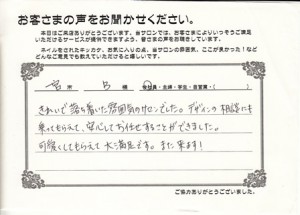 お客さまの声をお聞かせください。
本日はご来店ありがとうございます。当サロンでは、お客さまによりいっそうご満足
いただけるサービスが提供できますよう、お客さまの声をお聞きしています。
ネイルをされたキッカケ、お気に入りの点、当サロンの雰囲気、ここが良かった！など
どんなご意見でも教えていただけると嬉しいです。
市
様
会社員・主婦・学生・自営業・(　　)
きれいで落ち着いた雰囲気のサロンでした。デザインの相談にも
乗ってもらえて、安心してお任せすることができました。
可愛くしてもらえて大満足です。また来ます!
ご協力ありがとうございました。